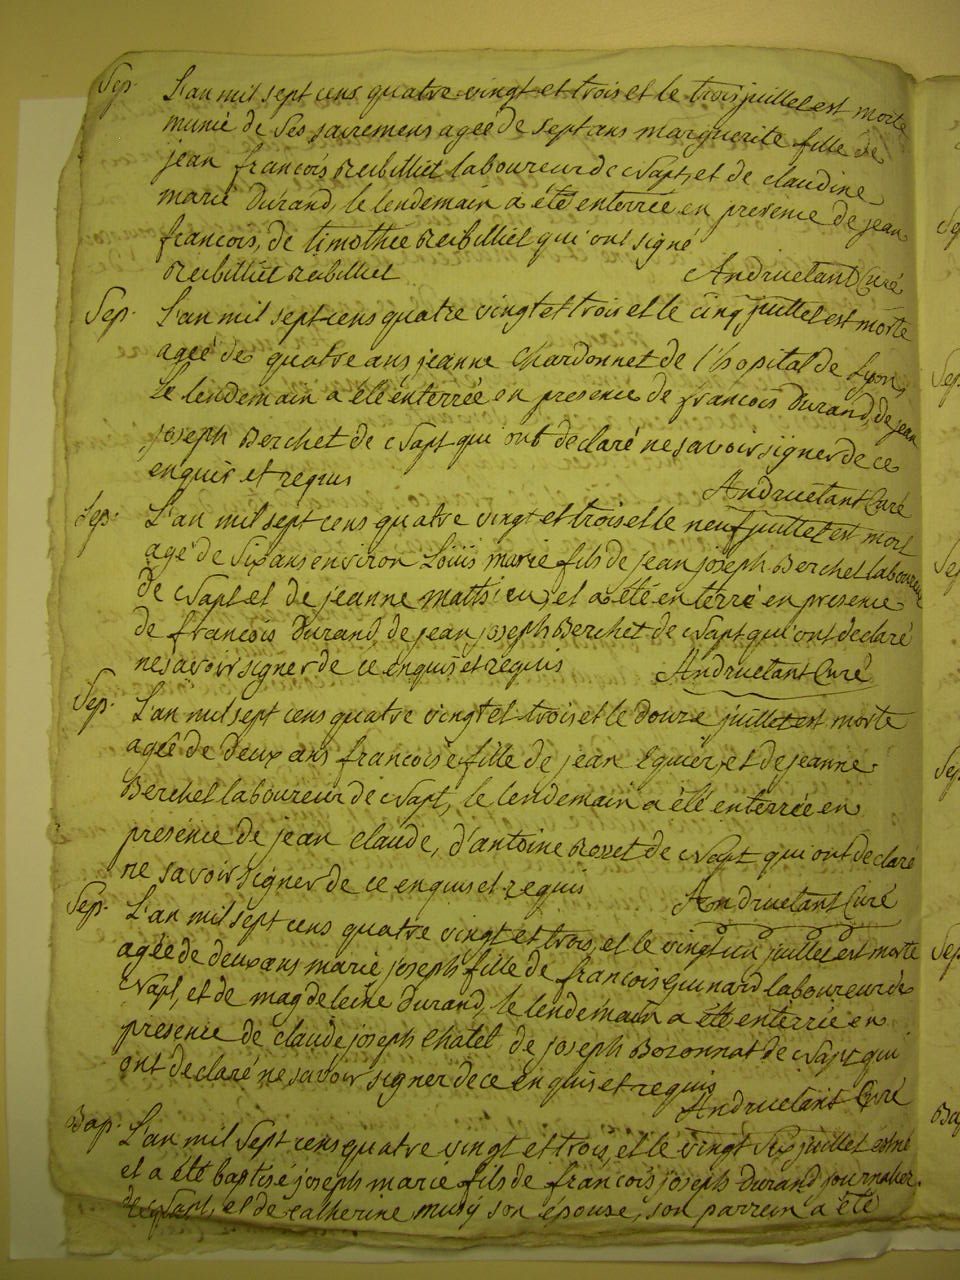 Sep. L'an mil sept cens quatre vingt et trois et le trois juillet est morte
munie de ses sacremens ageé de sept ans marguerite fille de
jean francois Reibilliet laboureur de Napt, et de claudine
marie Durand, le lendemain a été enterrée en presence de jean
francois, de timothée Reibilliet qui ont signé
Reibilliet Reibilliet Andruetant Curé
Sep. L'an mil sept cens quatre vingt et trois et le cinq juillet est morte
ageé de quatre ans jeanne Chardonnet de l'hopital de Lyon,
le lendemain a été enterrée en presence de francois Durand, de jean
joseph Berchet de Napt qui ont declaré ne savoir signer de ce
enquis et requis Andruetant Curé
Sep. L'an mil sept cens quatre vingt et trois et le neuf juillet est mort
agé de six ans environ Loüis marie fils de jean joseph Berchet laboureur
de Napt et de jeanne matthieu, et a été enterré en presence
de francois Durand, de jean joseph Berchet de Napt qui ont declaré
ne savoir signer de ce enquis et requis Andruetant Curé
Sep. L'an mil sept cens quatre vingt et trois et le douze juillet est morte
ageé de deux ans francoise fille de jean Eguier, et de jeanne
Berchet laboureur de Napt, le lendemain a été enterrée en
presence de jean claude, d'antoine Rovet de Napt qui ont declaré
ne savoir signer de ce enquis et requis Andruetant Curé
Sep. L'an mil sept cens quatre vingt et trois, et le vingt un juillet est morte
ageé de deux ans marie joseph fille de francois Guinard laboureur de
Napt, et de magdeleine Durand, le lendemain a été enterrée en
presence de claude joseph Chatel, de joseph Bozonnat de Napt qui
ont declaré ne savoir signer de ce enquis et requis
Andruetant Curé
Bap. L'an mil sept cens quatre vingt et trois, et le vingt six juillet est né
et a été baptisé joseph marie fils de francois joseph Durand journalier
de Napt, et de catherine musy son épouse, son parrein a été